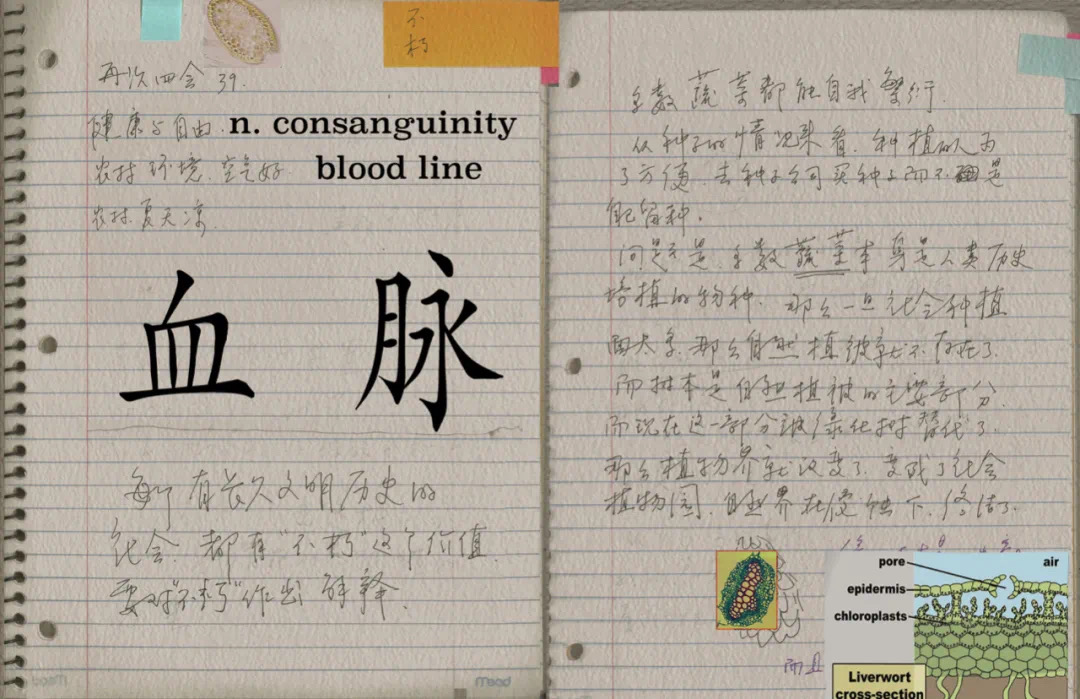 不
朽
再次四会 39.
健康与自由.
n. consanguinity
blood line
农村环境.空气好.
农村.夏天凉
血脉
每个有长久文明历史的
社会.都有"不朽"这个价值.
要对"不朽"作出解释.
多数蔬菜都能自我繁衍.
从种子的情况来看.种植的人为
了方便.去种子公司买种子而不是
配留种.
问题是.多数蔬菜本身是人类历史
培植的物种.那么一旦社会种植
面太多.那么自然植被就不存在了.
而树本是自然植被的主要部分.
而现在这一部分被绿化树替代了.
那么植物界就改变了.变成了社会
植物园.自然界在侵蚀下.终结了.
而且
pore
air
epidermis
chloroplasts
Liverwort
cross-section
Mead